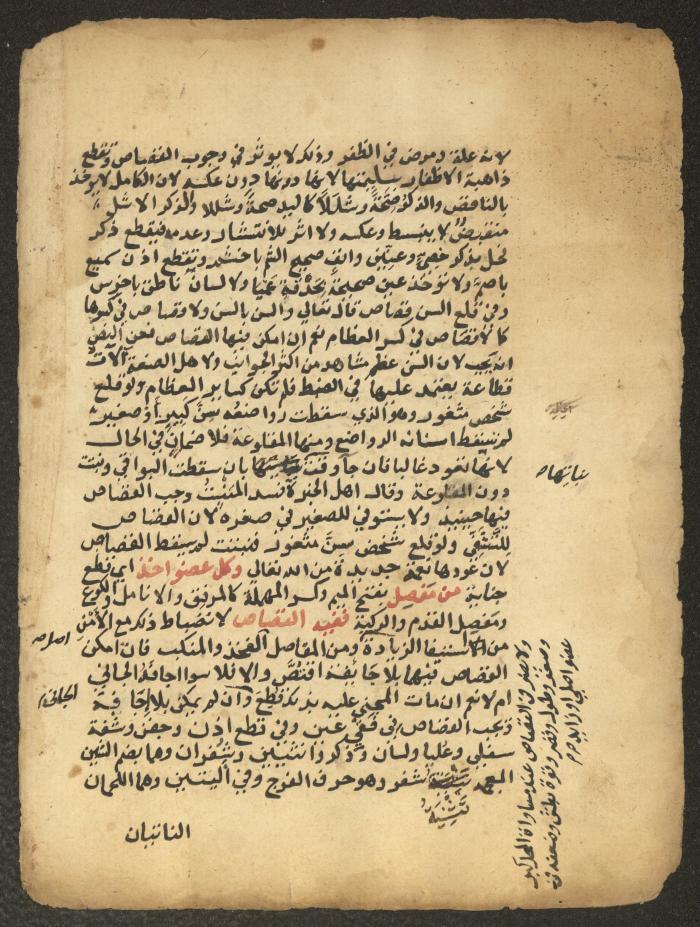 لانه علة ومرض في الظفر وذلك لا يوثر في وجوب القصاص وتقطع
ذاهبة الاظفار بسليمتها لانها دونها دون عكسه لان الكامل لا يوخذ
بالناقص والذكر صحة وشللا كاليد صحة وشللا والذكر الاشل
منقبض لا ينبسط وعكسه ولا اثر للانتشار وعدمه فيقطع ذكر
فحل بذكر خصي وعنين وانف صحيح الشم باخشم وتقطع اذن سميع
باصم ولا تؤخذ عين صحيحة بحدقة عميا ولا لسان ناطق باخرس
وفي قلع السن قصاص قال تعالي والسن بالسن ولا قصاص في كسرها
كما لا قصاص في كسر العظام نعم ان امكن فيها القصاص فعن النص
انه يجب لان السن عظم مشاهد من اكثر الجوانب ولاهل الصنعة آلات
قطاعة يعتمد عليها في الضبط فلم تكن كسايرالعظام ولو قلع
شخص مثغور وهو الذي سقطت رواضعه سن كبير او صغير
لم تسقط اسنانه الرواضع ومنها المقلوعة فلا ضمان في الحال
لانها تعود غالبا فان جا وقت بان سقطت البواقي ونبتت
دون المقلوعة وقال اهل الخبرة فسد المنبت وجب القصاص
فيها حينيذ ولا يستوفي للصغير في صغره لان القصاص
للتشفي ولو قلع شخص سن مثغور فنبتت لم يسقط القصاص
لان عودها نعمة جديدة من الله تعالي وكل عضو اخذ اي قطع
جناية من مفصل بفتح الميم وكسر المهملة كالمرفق والانامل والكوع
ومفصل القدم والركبة ففيه القصاص لانضباط ذلك مع الأمن
من استيفا الزيادة ومن المفاصل الفخذ والمنكب فان امكن
القصاص فيها بلا جايفة اقتص والا فلا سوا اجافه الجاني
ام لا نعم ان مات المجني عليه بذلك قطع وان لم يمكن بلا اجافة
ويجب القصاص في فقي عين وفي قطع اذن وجفن وشفة
سفلي وعليا ولسان وذكر وانثيين وشفران وهما بضم الشين
المعجمة تثنية شفر وهو حرف الفرج وفي اليتين وهما اللحمان
الناتيان
نباتها ص
اصل ص
الجاني
ولا يضر في القصاص عند مساواة المحل كبر
وصغر وطول وقصر وقوة بطش وضعفه في
عضو اصلي او زايد م ر